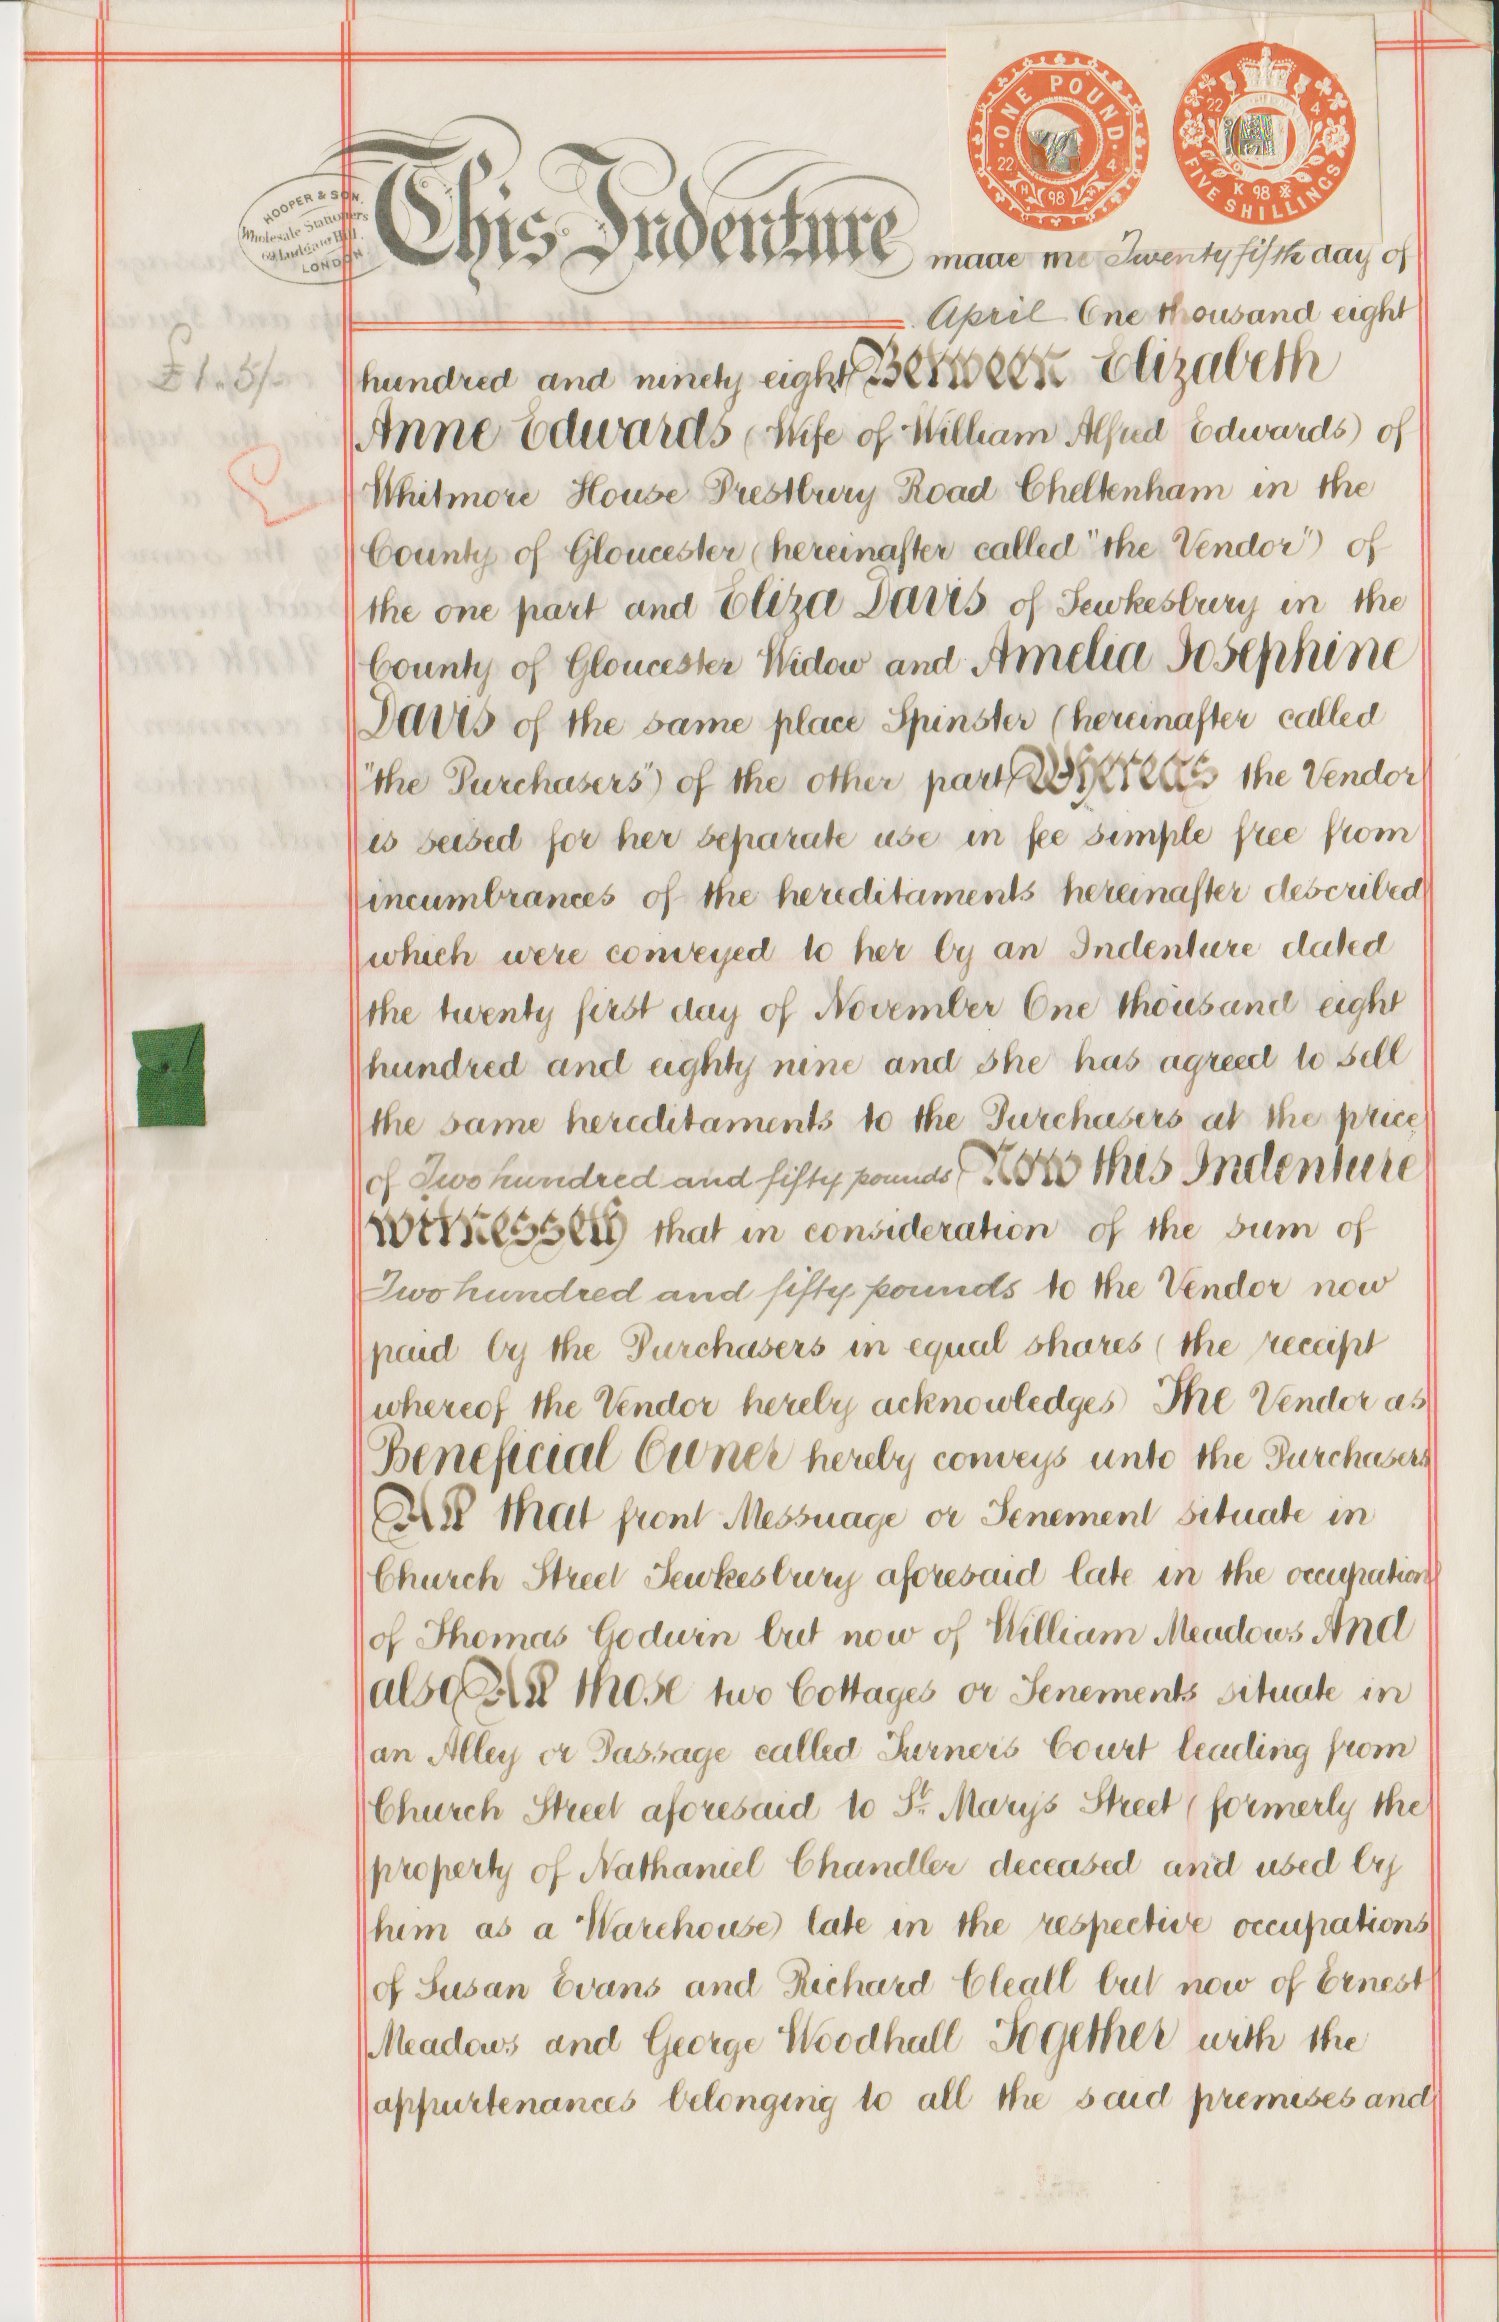 ONE POUND
22 4
H 98
22 4
K 98
FIVE SHILLINGS
HOOPER & SON,
Wholesale Stationers
69, Ludgate Hill,
LONDON.
This Indenture made the Twenty fifth day of
April One thousand eight
£1..5/-
hundred and ninety eight Between Elizabeth
Anne Edwards (Wife of William Alfred Edwards) of
Whitmore House Prestbury Road Cheltenham in the
County of Gloucester (hereinafter called "the Vendor") of
the one part and Eliza Davis of Tewkesbury in the
County of Gloucester Widow and Amelia Josephine
Davis of the same place Spinster (hereinafter called
"the Purchasers") of the other part Whereas the Vendor
is seised for her separate use in fee simple free from
incumbrances of the hereditaments hereinafter described
which were conveyed to her by an Indenture dated
the twenty first day of November One thousand eight
hundred and eighty nine and she has agreed to sell
the same hereditaments to the Purchasers at the price
of Two hundred and fifty pounds Now this Indenture
witnesseth that in consideration of the sum of
Two hundred and fifty pounds to the Vendor now
paid by the Purchasers in equal shares (the receipt
whereof the Vendor hereby acknowledges) The Vendor as
Beneficial Owner hereby conveys unto the Purchasers
All that front Messuage or Tenement situate in
Church Street Tewkesbury aforesaid late in the occupation
of Thomas Godwin but now of William Meadows And
also All those two Cottages or Tenements situate in
an Alley or Passage called Turners Court leading from
Church Street aforesaid to St. Marys Street (formerly the
property of Nathaniel Chandler deceased and used by
him as a Warehouse) late in the respective occupations
of Susan Evans and Richard Cleall but now of Ernest
Meadows and George Woodhall Together with the
appurtenances belonging to all the said premises and